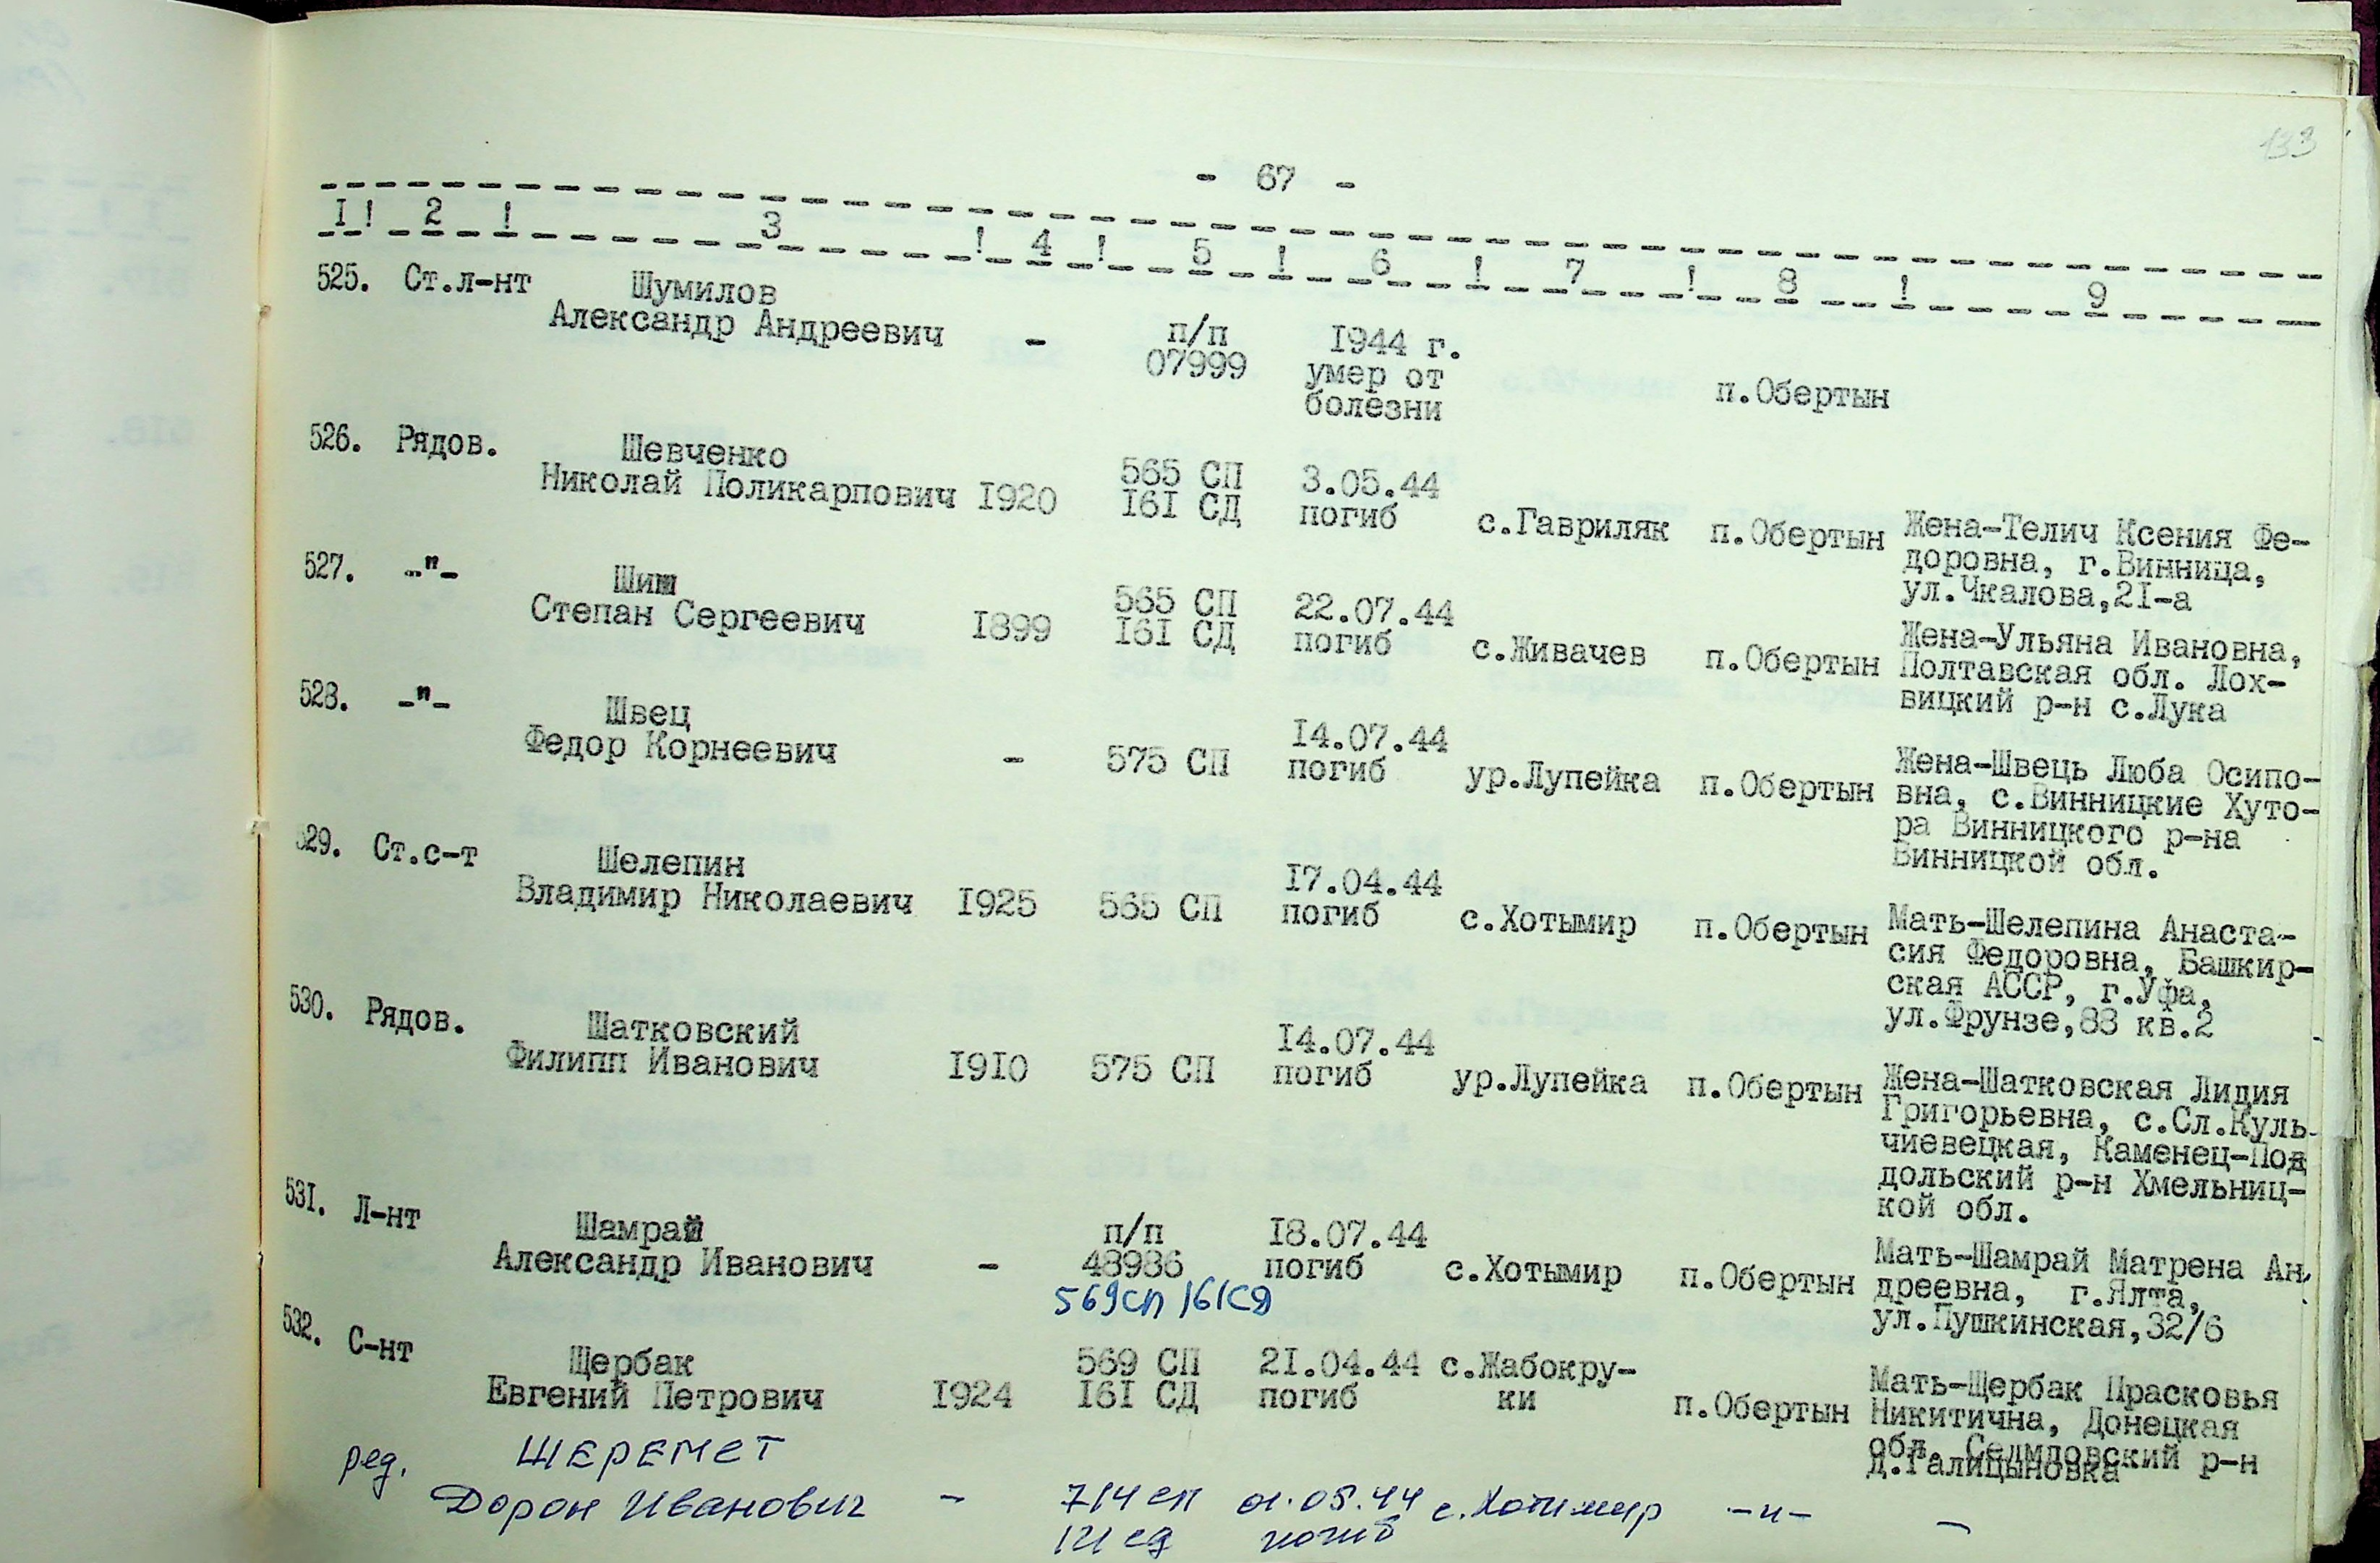 133
- 67 -
I ! 2 ! 3 ! 4 ! 5 ! 6 ! 7 ! 8 ! 9
525. Ст.л-нт Шумилов
Александр Андреевич - п/п 1944 г.
07999 умер от п.Обертын
болезни
526. Рядов. Шевченко
Николай Поликарпович I920 565 СП 3.05.44
I6I СД погиб с.Гавриляк п.Обертын Жена-Телич Ксения Фе-
доровна, г.Винница,
ул.Чкалова,2I-а
527. -"- Шиш
Степан Сергеевич I899 565 СП 22.07.44
I6I СД погиб с.Живачев п.Обертын Жена-Ульяна Ивановна,
Полтавская обл. Лох-
вицкий р-н с.Лука
528. -"- Швец
Федор Корнеевич - 575 СП I4.07.44
погиб ур.Лупейка п.Обертын Жена-Швець Люба Осипо-
вна, с.Винницкие Хуто-
ра Винницкого р-на
Винницкой обл.
529. Ст.с-т Шелепин
Владимир Николаевич I925 565 СП I7.04.44
погиб с.Хотымир п.Обертын Мать-Шелепина Анаста-
сия Федоровна, Башкир-
ская АССР, г.Уфа,
ул.Фрунзе,88 кв.2
530. Рядов. Шатковский
Филипп Иванович I9I0 575 СП I4.07.44
погиб ур.Лупейка п.Обертын Жена-Шатковская Лидия
Григорьевна, с.Сл.Куль-
чиевецкая, Каменец-Под
дольский р-н Хмельниц-
кой обл.
53I. Л-нт Шамрай
Александр Иванович - п/п I8.07.44
48986 погиб с.Хотымир п.Обертын Мать-Шамрай Матрена Ан-
569сп 161сд дреевна, г.Ялта,
ул.Пушкинская,32/6
532. С-нт Щербак
Евгений Петрович I924 569 СП 2I.04.44 с.Жабокру-
I6I СД погиб ки п.Обертын Мать-Щербак Прасковья
Никитична, Донецкая
обл. Селидовский р-н
д.Галицыновка
ред. ШЕРЕМЕТ
Дорон Иванович - 714 сп 01.05.44 с.Хотимир -и- -
погиб